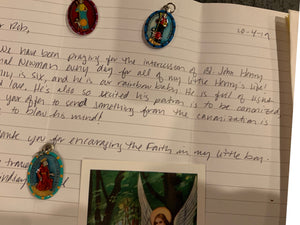 Rob,
10-4-19
We have been praying for the intercession of Bl. John Henry
Newman every day for all of my little Henry's life!
is six, and he is our rainbow baby. He is full of light
and love. He's also so excited his patron is to be canonized
your offer to send something from the canonization is
to blow his mind!
Thank you for encouraging the Faith in my little boy.